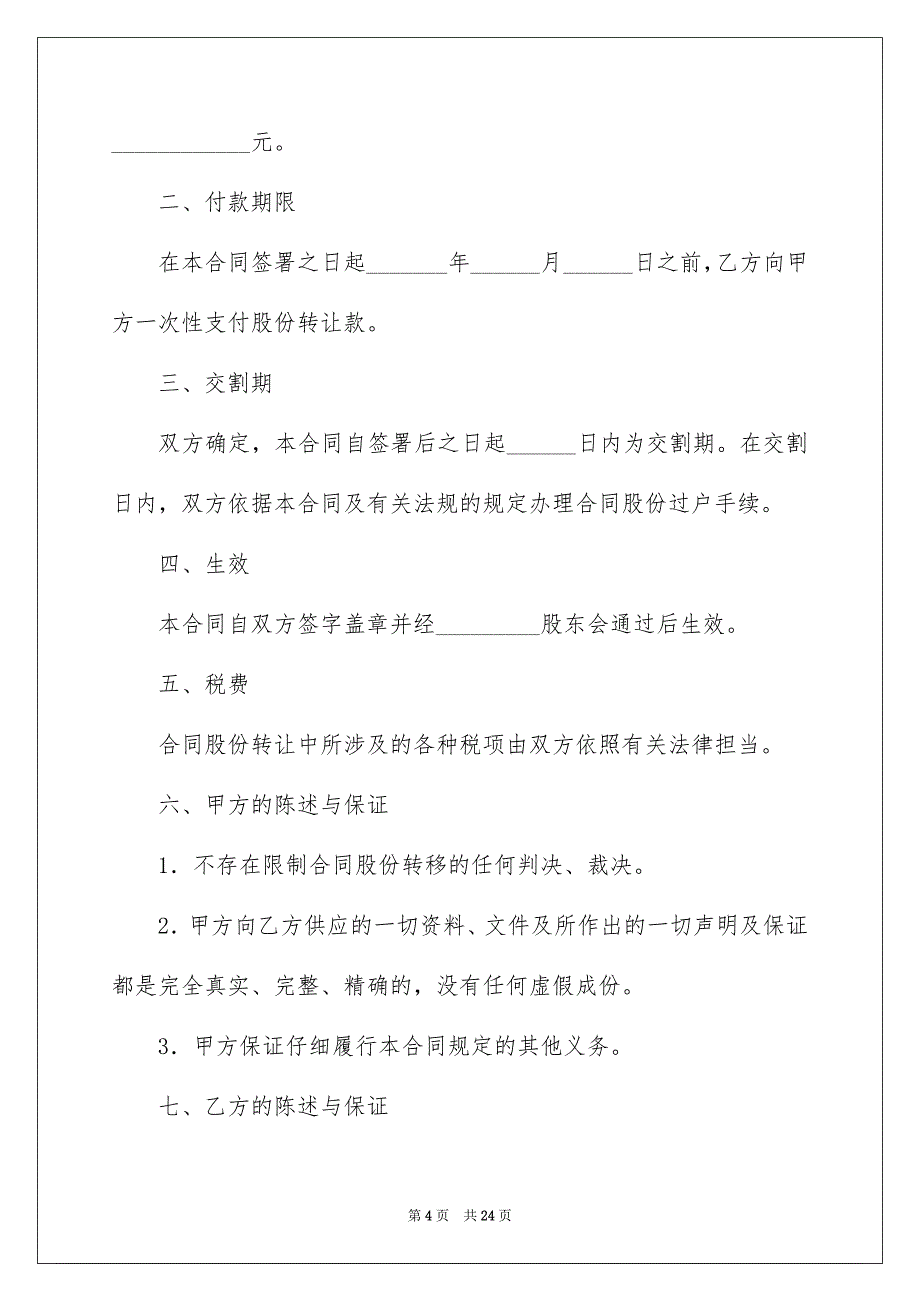 ____________元。
二、付款期限
在本合同签署之日起_______年______月______日之前,乙方向甲
方一次性支付股份转让款。
三、交割期
双方确定，本合同自签署后之日起______日内为交割期。在交割
日内，双方依据本合同及有关法规的规定办理合同股份过户手续。
四、生效
本合同自双方签字盖章并经_________股东会通过后生效。
五、税费
合同股份转让中所涉及的各种税项由双方依照有关法律担当。
六、甲方的陈述与保证
1．不存在限制合同股份转移的任何判决、裁决。
2．甲方向乙方供应的一切资料、文件及所作出的一切声明及保证
都是完全真实、完整、精确的，没有任何虚假成份。
3．甲方保证仔细履行本合同规定的其他义务。
七、乙方的陈述与保证
第4页 共24页